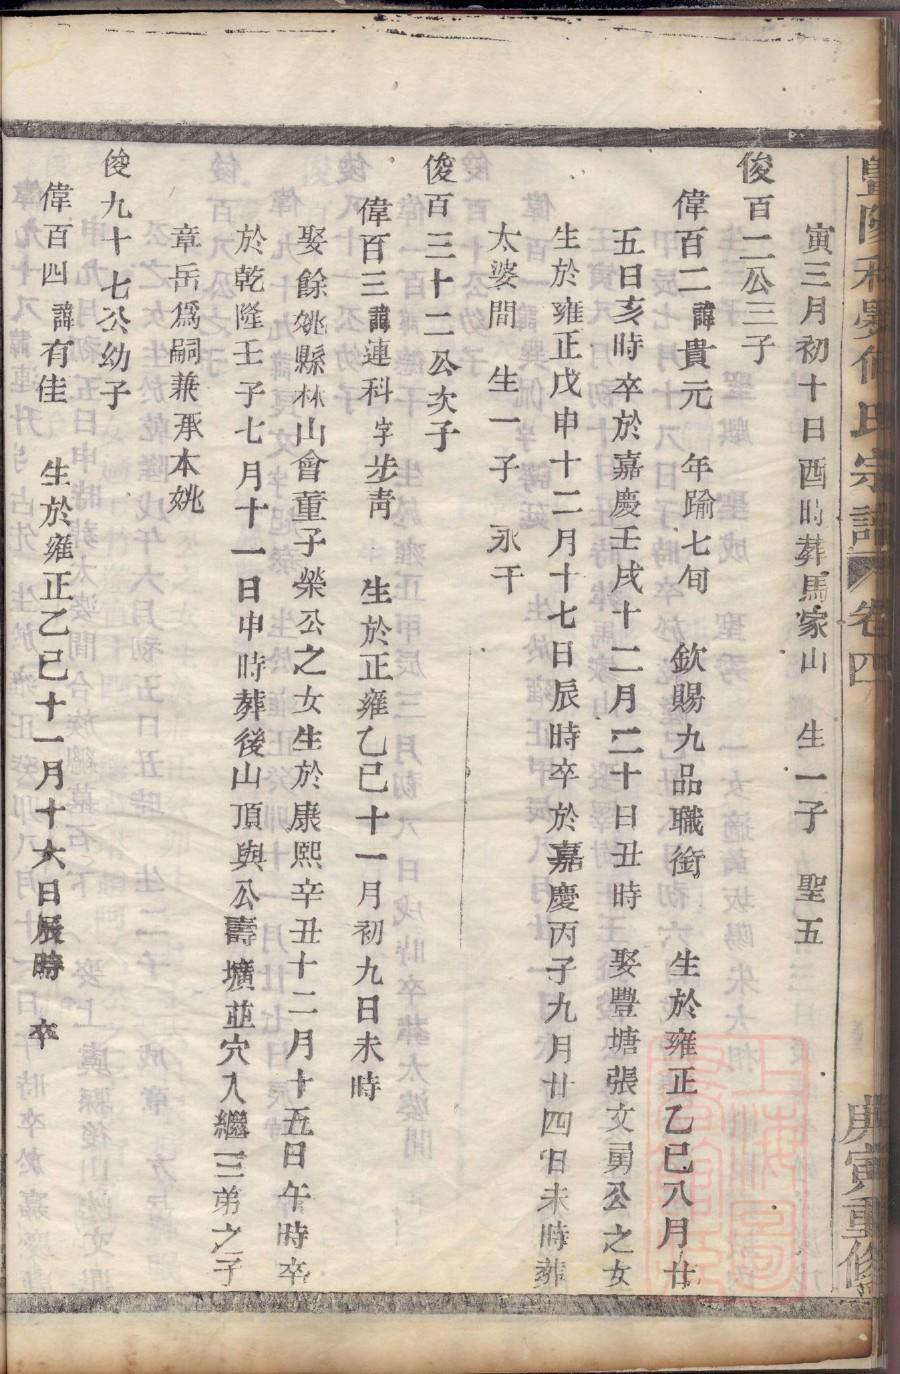 氏宗譜 卷四 庚寅重修
寅三月初十日酉時葬馬家山 生一子 聖五
俊百二公三子
偉百二諱貴元 年踰七旬 欽賜九品職銜 生於雍正乙巳八月廿
五日亥時卒於嘉慶壬戌十二月二十日丑時 娶豐塘張文勇公之女
生於雍正戊申十二月十七日辰時卒於嘉慶丙子九月廿四日未時葬
太婆間 生一子 永干
俊百三十二公次子
偉百三諱連科字步青 生於正雍乙巳十一月初九日未時
娶餘姚縣林山會董子榮公之女生於康熙辛丑十二月十五日午時卒
於乾隆壬子七月十一日申時葬後山頂與公壽壙並穴入繼三弟之子
章岳爲嗣兼承本姚
俊九十七公幼子
偉百四諱有佳 生於雍正乙巳十一月十六日辰時 卒